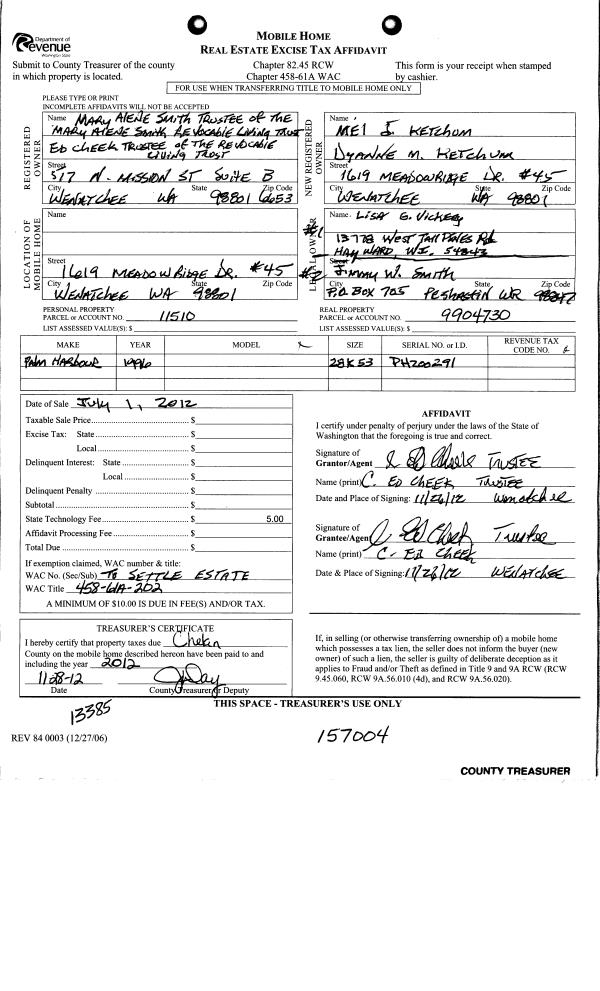 Department of
Revenue
Washington State
MOBILE HOME
REAL ESTATE EXCISE TAX AFFIDAVIT
Submit to County Treasurer of the county
in which property is located.
Chapter 82.45 RCW
Chapter 458-61A WAC
This form is your receipt when stamped
by cashier.
FOR USE WHEN TRANSFERRING TITLE TO MOBILE HOME ONLY
PLEASE TYPE OR PRINT
INCOMPLETE AFFIDAVITS WILL NOT BE ACCEPTED
REGISTERED OWNER
Name MARY ALENE SMITH TRUSTEE OF THE
MARY ALENE SMITH REVOCABLE LIVING TRUST
ED CHEEK TRUSTEE OF THE REVOCABLE
LIVING TRUST
Street 517 N. MISSION ST SUITE B
City State Zip Code
WENATCHEE WA 98801 6653
NEW REGISTERED OWNER
Name MEI J. KETCHUM
DYANNE M. KETCHUM
Street 1619 MEADOWRIDGE DR. #45
City State Zip Code
WENATCHEE WA 98801
LOCATION OF MOBILE HOME
Name
Street 1619 MEADOWRIDGE DR. #45
City State Zip Code
WENATCHEE WA 98801
#1
Name LISA G. VICKERY
13778 WEST TALL PINES Rd
HAYWARD, WI. 54843
#2 Street JIMMY W. SMITH
City State Zip Code
P.O. BOX 705 PESHASTIN 98847
PERSONAL PROPERTY
PARCEL or ACCOUNT NO. 11510
LIST ASSESSED VALUE(S): $
REAL PROPERTY
PARCEL or ACCOUNT NO. 9904730
LIST ASSESSED VALUE(S): $
MAKE YEAR MODEL SIZE SERIAL NO. or I.D. REVENUE TAX CODE NO.
PALM HARBOUR 1996 28x53 PH200291
Date of Sale July 1, 2012
Taxable Sale Price $
Excise Tax: State $
Local $
Delinquent Interest: State $
Local $
Delinquent Penalty $
Subtotal $
State Technology Fee $ 5.00
Affidavit Processing Fee $
Total Due $
If exemption claimed, WAC number & title:
WAC No. (Sec/Sub) TO SETTLE ESTATE
WAC Title 458-61A-202
A MINIMUM OF $10.00 IS DUE IN FEE(S) AND/OR TAX.
AFFIDAVIT
I certify under penalty of perjury under the laws of the State of
Washington that the foregoing is true and correct.
Signature of
Grantor/Agent C Ed Cheek TRUSTEE
Name (print) C. ED CHEEK TRUSTEE
Date and Place of Signing: 11/26/12 Wenatchee
Signature of
Grantee/Agent C Ed Cheek Trustee
Name (print) C. ED CHEEK
Date & Place of Signing: 11/26/12 WENATCHEE
TREASURER'S CERTIFICATE
I hereby certify that property taxes due Chelan
County on the mobile home described hereon have been paid to and
including the year 2012
11-28-12 J Day
Date County Treasurer or Deputy
If, in selling (or otherwise transferring ownership of) a mobile home
which possesses a tax lien, the seller does not inform the buyer (new
owner) of such a lien, the seller is guilty of deliberate deception as it
applies to Fraud and/or Theft as defined in Title 9 and 9A RCW (RCW
9.45.060, RCW 9A.56.010 (4d), and RCW 9A.56.020).
THIS SPACE - TREASURER'S USE ONLY
13385
REV 84 0003 (12/27/06)
157004
COUNTY TREASURER